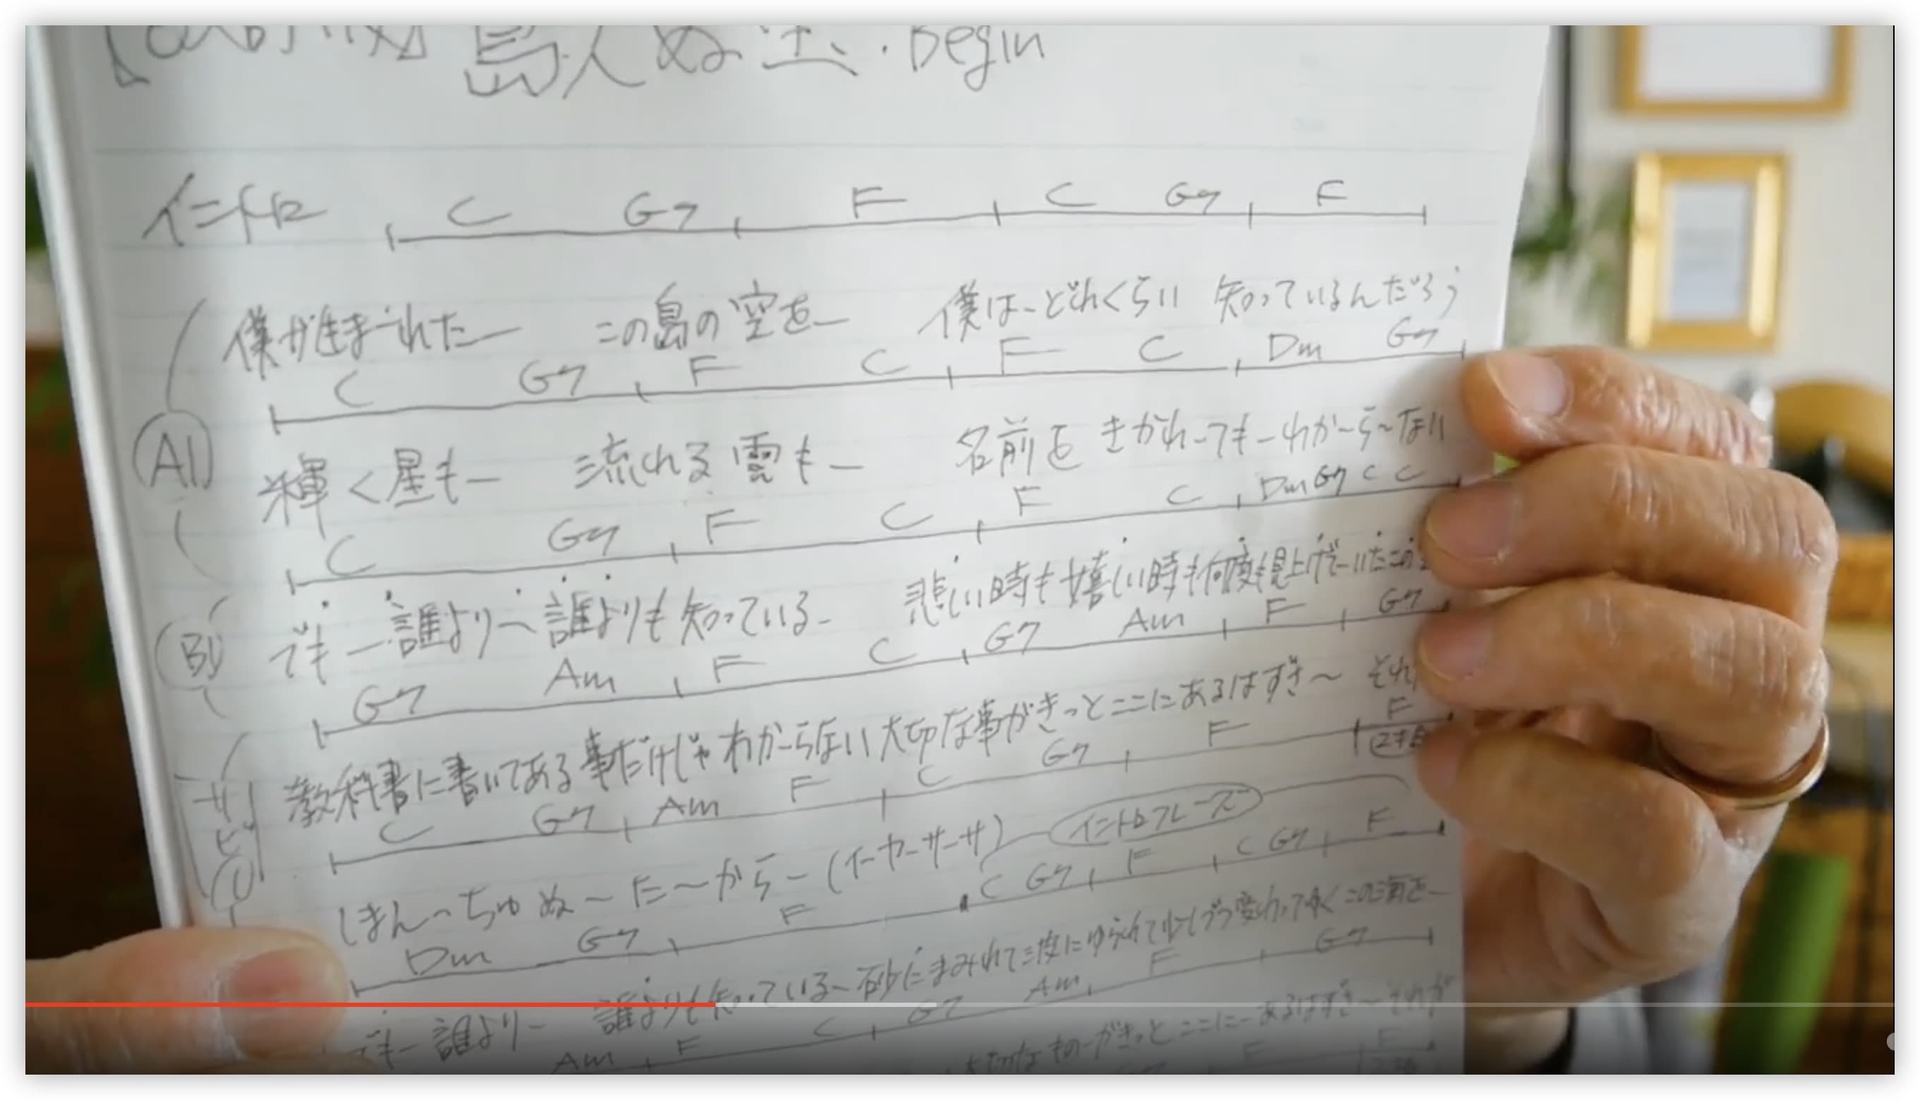 島人ぬ宝・Begin
イントロ
C G7 F C G7 F
僕が生まれたー この島の空をー 僕はーどれくらい 知っているんだろう
C G7 F C F C Dm G7
A1
輝く星もー 流れる雲もー 名前を きかれーてもーわかーらーない
C G7 F C F C Dm G7 C C
B1
でもー誰よりー誰よりも知っているー 悲しい時も嬉しい時も何度も見上げてーいたこの
G7 Am F C G7 Am F G7
サビ
教科書に書いてある事だけじゃわからない大切な事がきっとここにあるはずさ〜 それ
C G7 Am F C G7 F F
しまんーちゅぬ〜た〜からー(イーヤーサーサ) イントロフレーズ
Dm G7 F C G7 F C G7 F
でもー誰よりー 誰よりも知っている〜砂にまみれて波にゆられて少しずつ変わってゆくこの海をー
Am F C G7 Am F G7
大切なものーがきっとここにーあるはずさ〜それが
F F